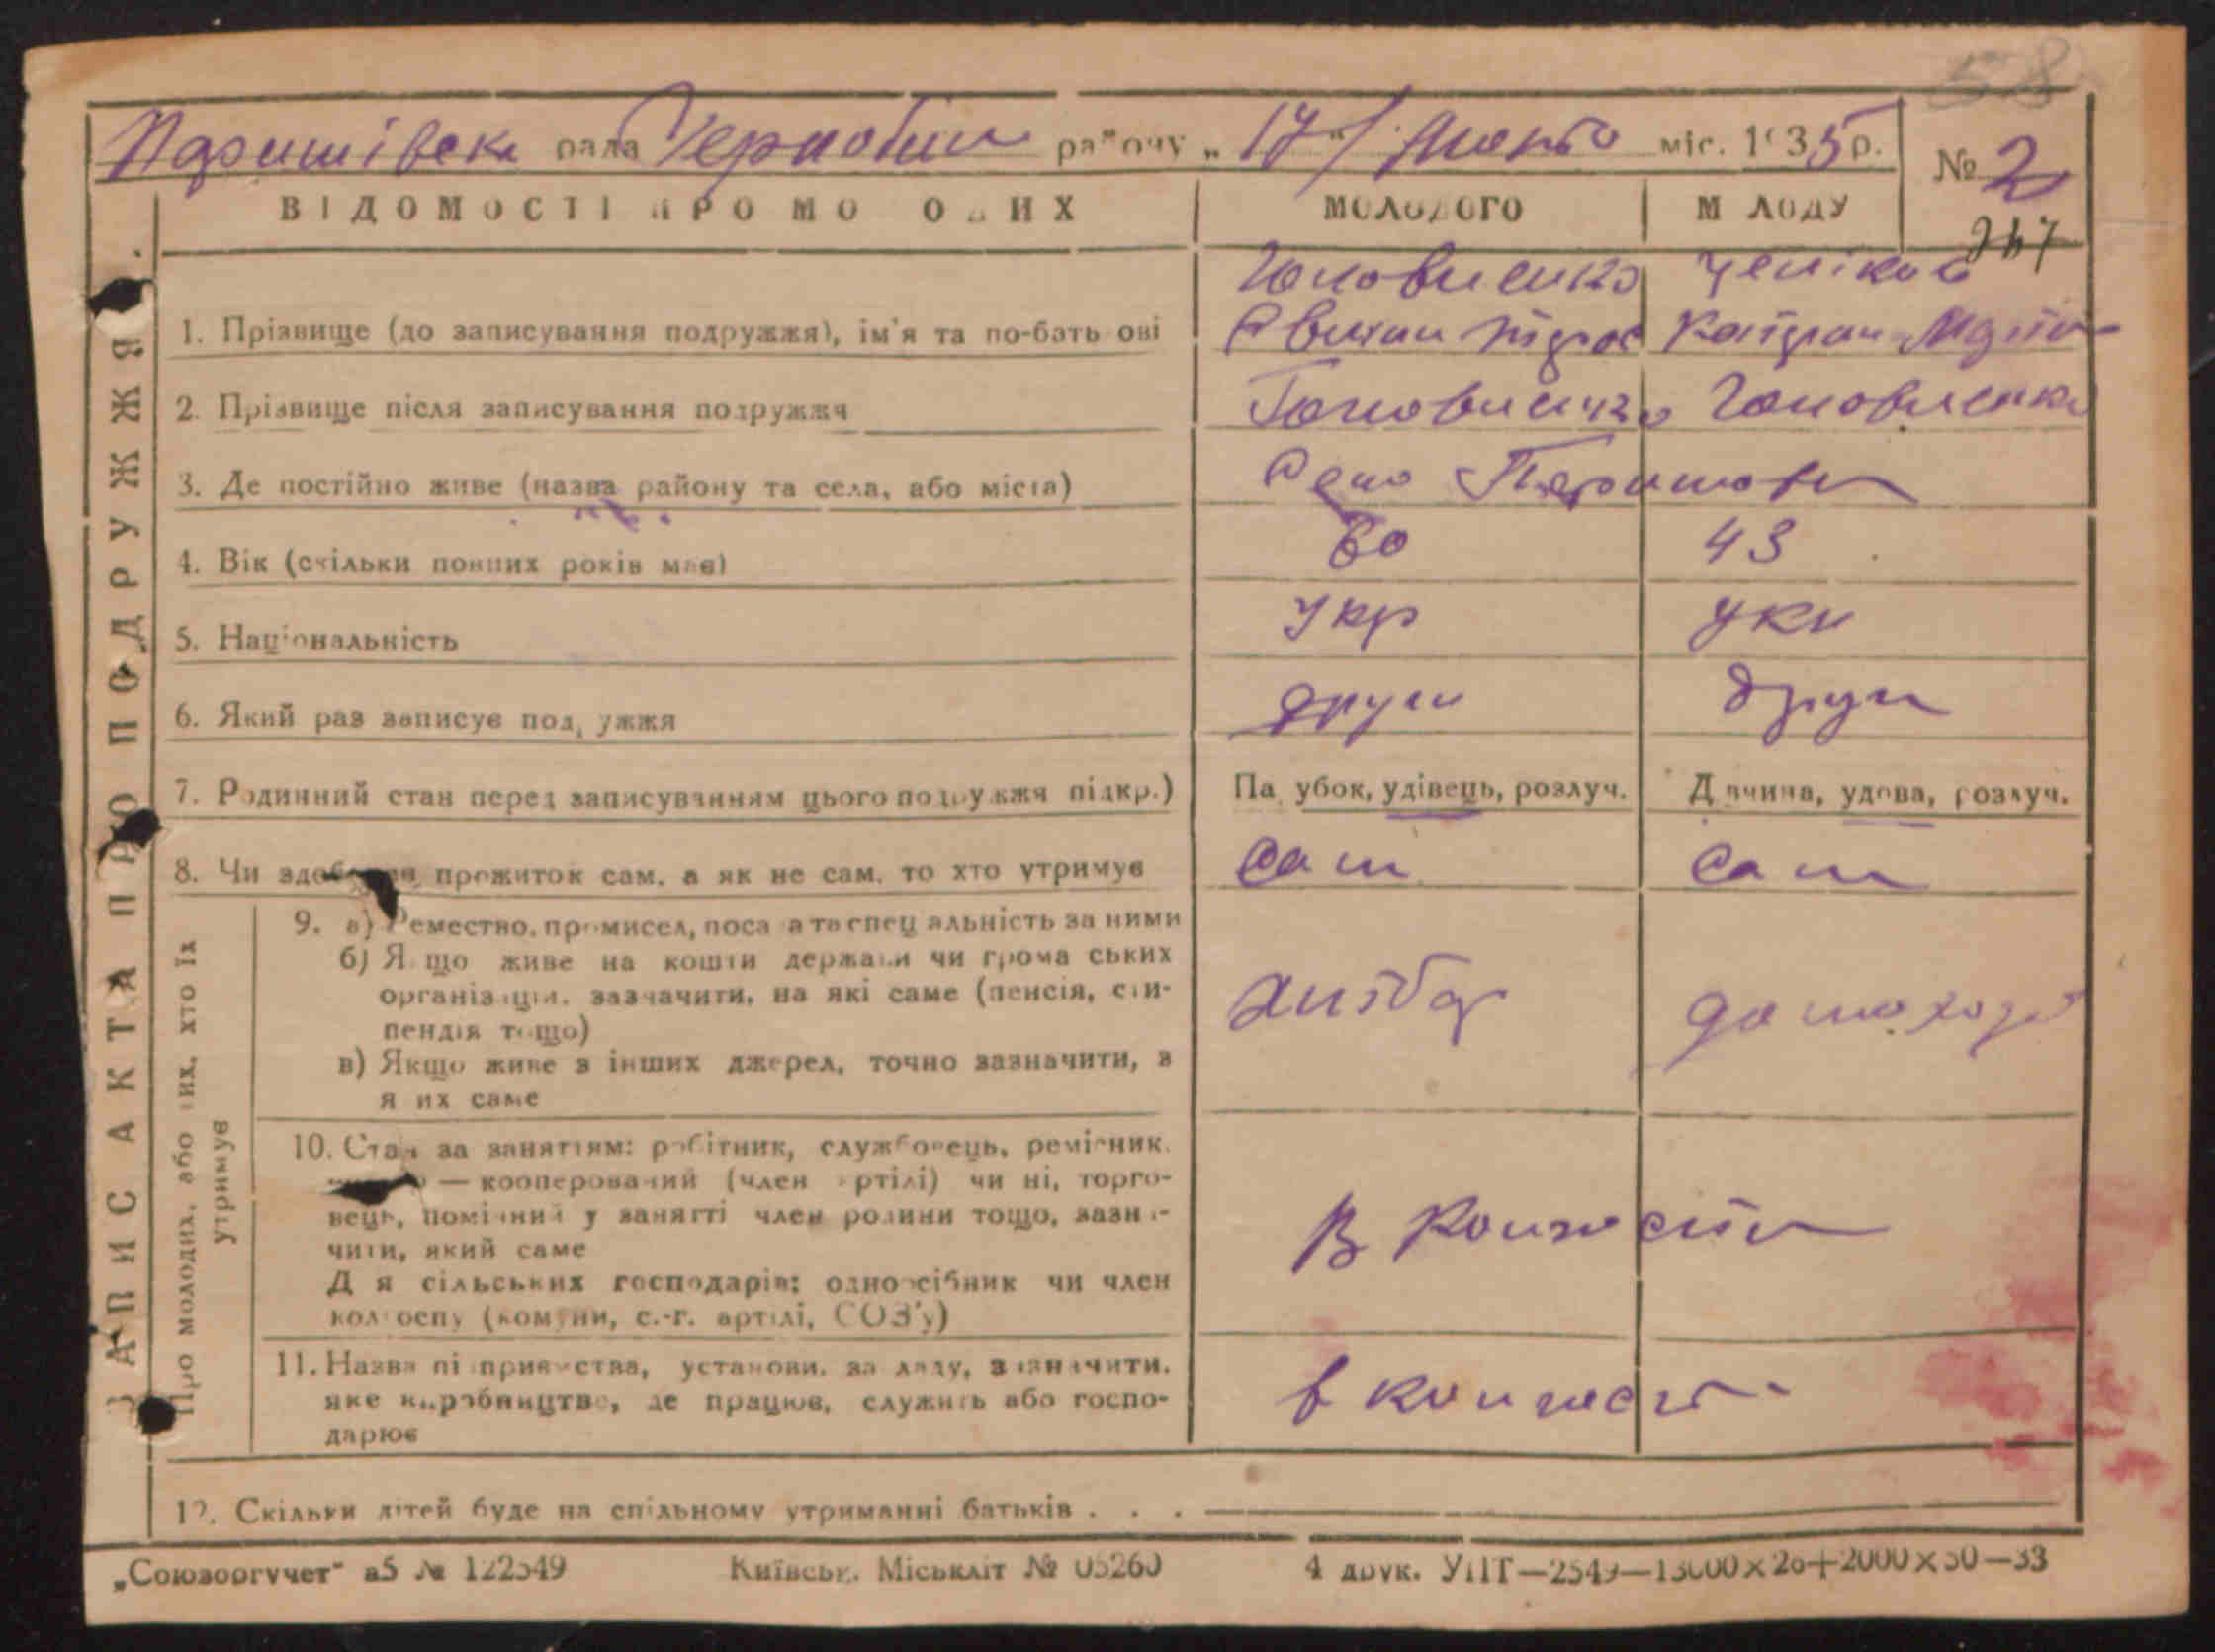 58
Паришівска рада Чернобил району „17" / Лютго міс. 1935 р.
№ 2
247
ВІДОМОСТІ ПРО МОЛОДИХ
МОЛОДОГО
МОЛОДУ
1. Прізвище (до записування подружжя), ім'я та по-батькові
2. Прізвище після записування подружжя
3. Де постійно живе (назва району та села, або міста)
Село Паришови
4. Вік (скільки повних років має)
60
43
5. Національність
Укр
Укр
6. Який раз записує подружжя
други
други
7. Родинний стан перед записуванням цього подружжя підкр.)
Парубок, удівець, розлуч.
Дівчина, удова, розлуч.
8. Чи здобував прожиток сам, а як не сам, то хто утримує
Сам
Сам
9. а) Ремество, промисел, посада та спеціальність за ними
б) Якщо живе на кошти держави чи громадських
організацій, зазначити, на які саме (пенсія, сти-
пендія тощо)
в) Якщо живе з інших джерел, точно зазначити, з
яких саме
хлібор
домоход
10. Стан за заняттям: робітник, службовець, ремісник,
— кооперований (член артілі) чи ні, торго-
вець, помічний у занятті член родини тощо, зазна-
чити, який саме
Для сільських господарів: одноосібник чи член
колгоспу (комуни, с.-г. артілі, СОЗ'у)
В
11. Назва підприємства, установи, закладу, зазначити,
яке виробництво, де працює, служить або госпо-
дарює
в
12. Скільки дітей буде на спільному утриманні батьків . . .
ЗАПИС АКТА ПРО ПОДРУЖЖЯ.
Про молодих, або тих, хто їх
утримує
„Союзоргучет" а5 № 122549
Київськ. Міськліт № 05260
4 друк. УПТ—2549—13000×20+2000×50—33